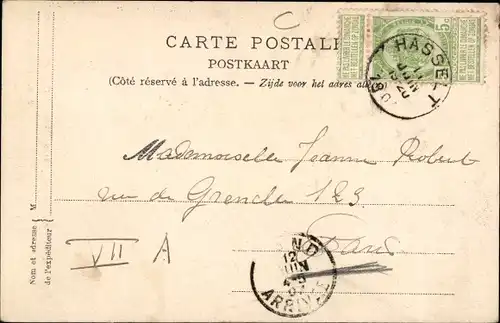 C
CARTE POSTALE
POSTKAART
(Côté réservé à l'adresse. — Zijde voor het adres
5c
HASSELT
JUIN
Mademoiselle Jeanne Robert
rue de Grenelle 123
Paris
VII A
12
JUIN
ARRIVÉE
M
Nom et adresse
de l'expéditeur